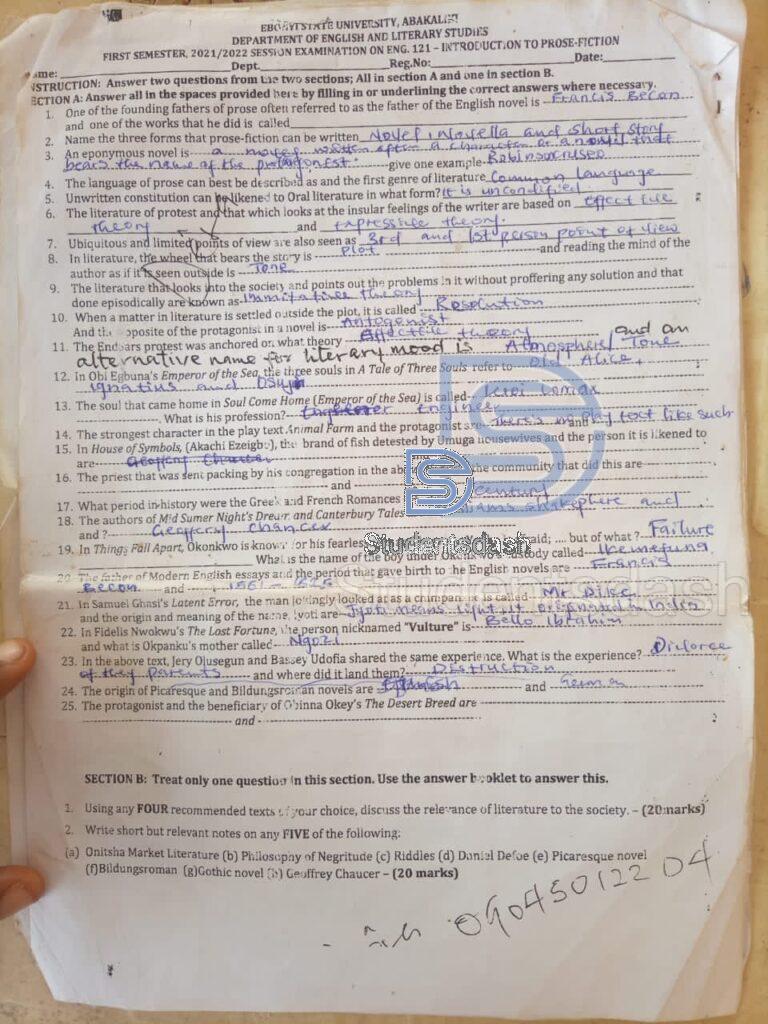 EBONYI STATE UNIVERSITY, ABAKALIKI
DEPARTMENT OF ENGLISH AND LITERARY STUDIES
FIRST SEMESTER, 2021/2022 SESSION EXAMINATION ON ENG. 121 – INTRODUCTION TO PROSE-FICTION
ame: Dept. Reg.No: Date:
NSTRUCTION: Answer two questions from the two sections; All in section A and one in section B.
ECTION A: Answer all in the spaces provided here by filling in or underlining the correct answers where necessary.
1. One of the founding fathers of prose often referred to as the father of the English novel is Francis Becon
and one of the works that he did is called
2. Name the three forms that prose-fiction can be written Novel, Novella and short story
3. An eponymous novel is a novel written after a character or a novel that
bears the name of the protagonest. give one example Robinsoncrusoe
4. The language of prose can best be described as and the first genre of literature Common language
5. Unwritten constitution can be likened to Oral literature in what form? It is uncodified
6. The literature of protest and that which looks at the insular feelings of the writer are based on Effective
theory and Expressive theory.
7. Ubiquitous and limited points of view are also seen as 3rd and 1st person point of view
8. In literature, the wheel that bears the story is Plot and reading the mind of the
author as if it is seen outside is Tone
9. The literature that looks into the society and points out the problems in it without proffering any solution and that
done episodically are known as Immitative theory
10. When a matter in literature is settled outside the plot, it is called Resolution
And the opposite of the protagonist in a novel is Antogonist
11. The Endsars protest was anchored on what theory Affective theory and an
alternative name for literary mood is Atmosphere/ Tone
12. In Obi Egbuna's Emperor of the Sea, the three souls in A Tale of Three Souls refer to Old Alice,
Ignatius and Osuji
13. The soul that came home in Soul Come Home (Emperor of the Sea) is called
What is his profession? Engineer
14. The strongest character in the play text Animal Farm and the protagonist are There's no play text like such
15. In House of Symbols, (Akachi Ezeigbo), the brand of fish detested by Umuga housewives and the person it is likened to
are Geoffery Chaucer
16. The priest that was sent packing by his congregation in the above the community that did this are
and
17. What period in history were the Greek and French Romances century
18. The authors of Mid Sumer Night's Dream and Canterbury Tales Williams shakesphere and
and ? Geoffery Chancer
19. In Things Fall Apart, Okonkwo is known for his fearless said; .... but of what? Failure
What is the name of the boy under Okonkwo's custody called Ikemefuna
20. The father of Modern English essays and the period that gave birth to the English novels are Francis
Becon and 1561 - 1626
21. In Samuel Ghasi's Latent Error, the man jokingly looked at as a chimpanzee is called Mr. Dike
and the origin and meaning of the name Jyoti are Jyoti means light it originated in India
22. In Fidelis Nwokwu's The Lost Fortune, the person nicknamed "Vulture" is Bello Ibrahim
and what is Okpanku's mother called Ngozi
23. In the above text, Jery Olusegun and Bassey Udofia shared the same experience. What is the experience? Divorce
of they parents and where did it land them? Distruction
24. The origin of Picaresque and Bildungsroman novels are Spanish and German
25. The protagonist and the beneficiary of Obinna Okey's The Desert Breed are
and
Studentsdash
studentsdash
SECTION B: Treat only one question in this section. Use the answer booklet to answer this.
1. Using any FOUR recommended texts of your choice, discuss the relevance of literature to the society. – (20marks)
2. Write short but relevant notes on any FIVE of the following:
(a) Onitsha Market Literature (b) Philosophy of Negritude (c) Riddles (d) Daniel Defoe (e) Picaresque novel
(f)Bildungsroman (g)Gothic novel (h) Geoffrey Chaucer – (20 marks)
09045012204